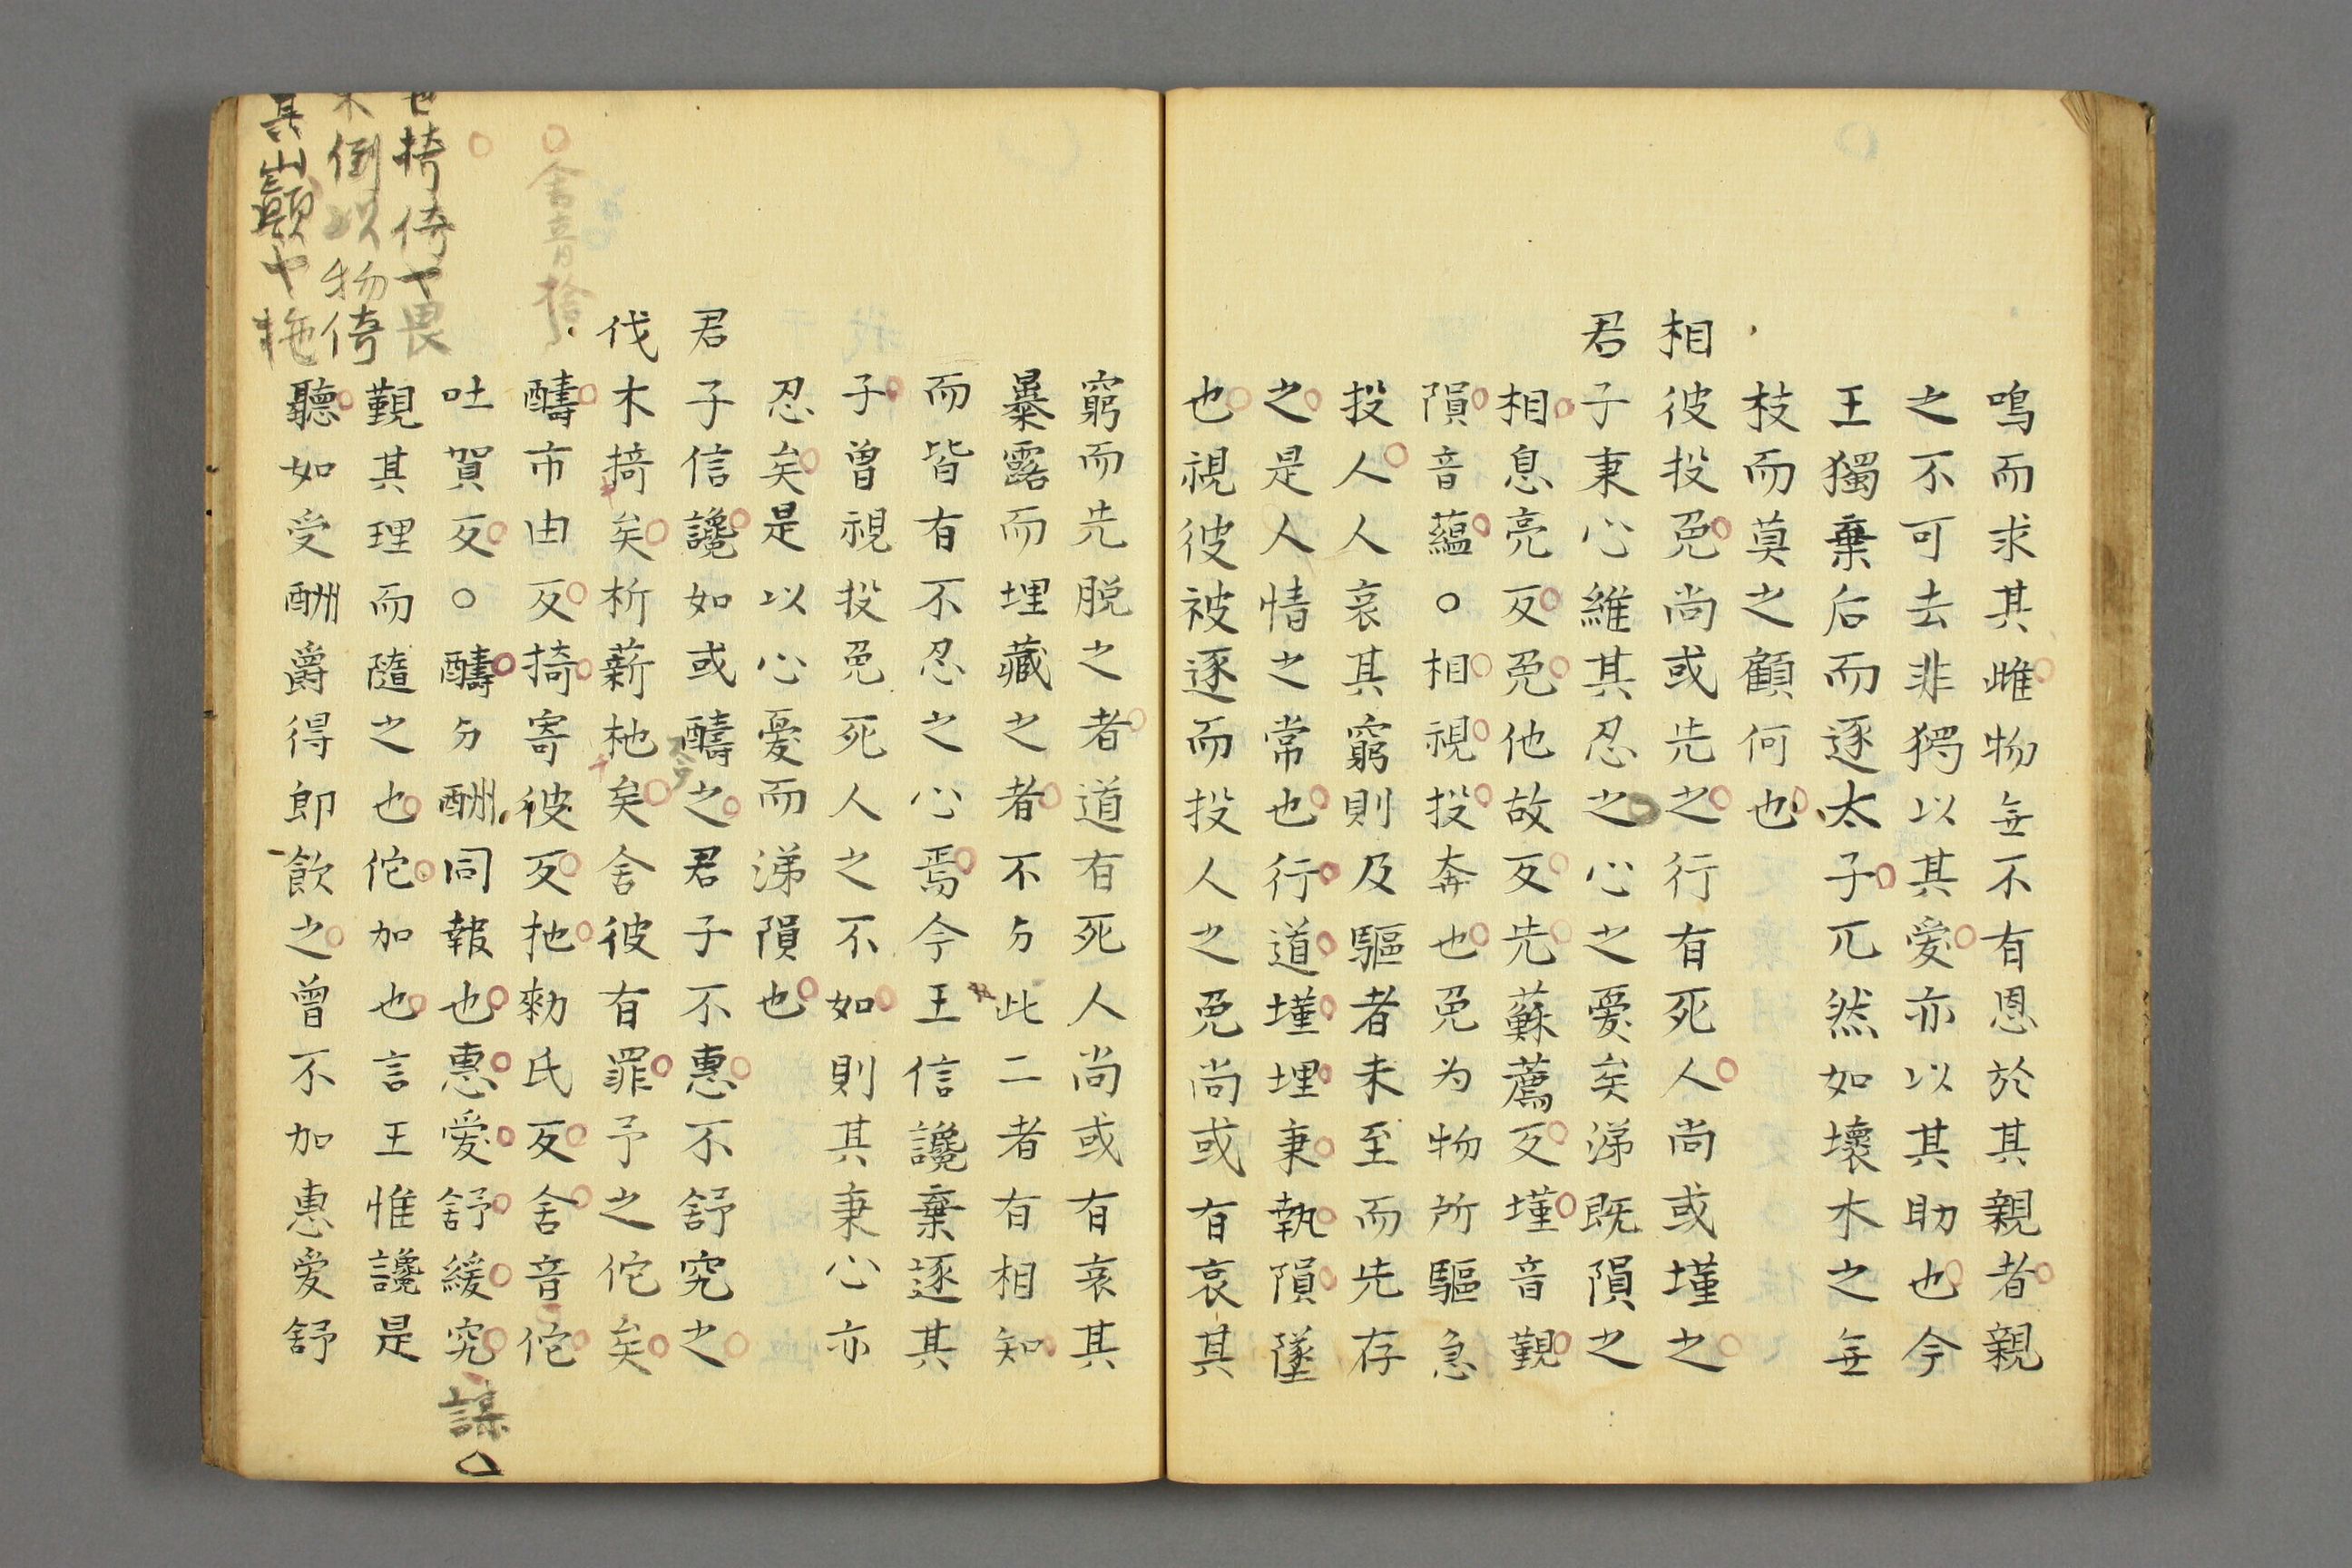 鳴而求其雌物無不有恩於其親者親
之不可去非獨以其愛亦以其助也今
王獨棄后而逐太子兀然如壞木之無
枝而莫之顧何也
相彼投兎尚或先之行有死人尚或墐之
君子秉心維其忍之心之憂矣涕既隕之
相息亮反兎他故反先蘇薦反墐音覲
隕音蘊○相視投奔也兎为物所驅急
投人人哀其窮則及驅者未至而先存
之是人情之常也行道墐埋秉執隕墜
也視彼被逐而投人之兎尚或有哀其
窮而先脫之者道有死人尚或有哀其
暴露而埋藏之者不方此二者有相知
而皆有不忍之心焉今王信讒棄逐其
子曾視投兎死人之不如則其秉心亦
忍矣是以心憂而涕隕也
君子信讒如或醻之君子不惠不舒究之
伐木掎矣析薪杝矣舍彼有罪予之佗矣
醻市由反掎寄彼反扡勑氏反舍音佗
吐賀反○醻方酬同報也惠愛舒緩究
覲其理而隨之也佗加也言王惟讒是
聽如受酬爵得即飲之曾不加惠愛舒
舍音捨
也掎倚也畏
木倒以物倚
其山巔也扡
謀